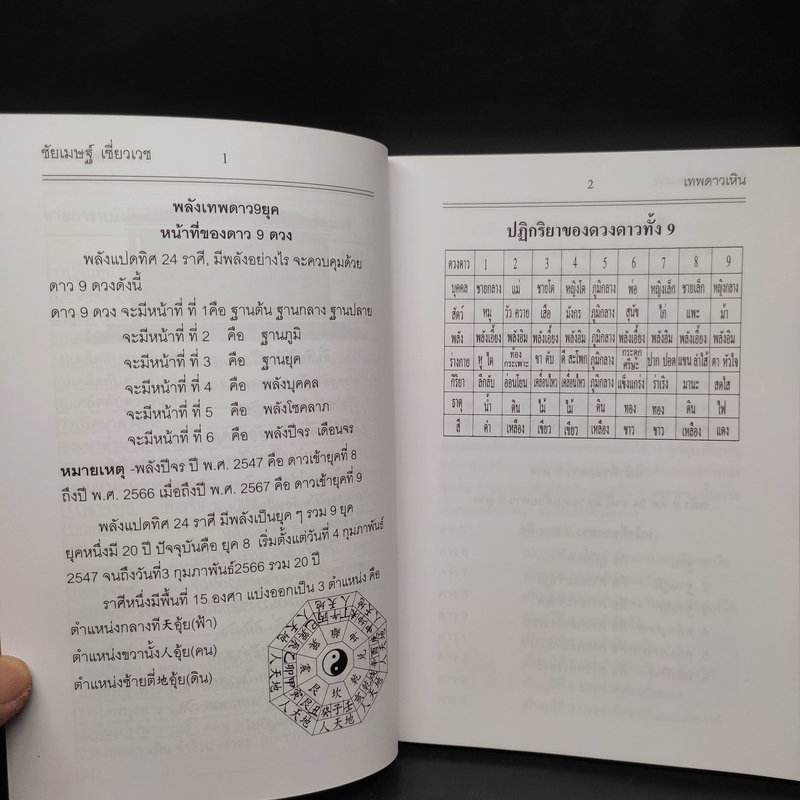 ชัยเมษฐ์ เชี่ยวเวช 1
พลังเทพดาว9ยุค
หน้าที่ของดาว 9 ดวง
พลังแปดทิศ 24 ราศี, มีพลังอย่างไร จะควบคุมด้วย
ดาว 9 ดวงดังนี้
ดาว 9 ดวง จะมีหน้าที่ ที่ 1คือ ฐานต้น ฐานกลาง ฐานปลาย
จะมีหน้าที่ ที่ 2 คือ ฐานภูมิ
จะมีหน้าที่ ที่ 3 คือ ฐานยุค
จะมีหน้าที่ ที่ 4 คือ พลังบุคคล
จะมีหน้าที่ ที่ 5 คือ พลังโชคลาภ
จะมีหน้าที่ ที่ 6 คือ พลังปีจร เดือนจร
หมายเหตุ -พลังปีจร ปี พ.ศ. 2547 คือ ดาวเข้ายุคที่ 8
ถึงปี พ.ศ. 2566 เมื่อถึงปี พ.ศ. 2567 คือ ดาวเข้ายุคที่ 9
พลังแปดทิศ 24 ราศี มีพลังเป็นยุค ๆ รวม 9 ยุค
ยุคหนึ่งมี 20 ปี ปัจจุบันคือ ยุค 8 เริ่มตั้งแต่วันที่ 4 กุมภาพันธ์
2547 จนถึงวันที่3 กุมภาพันธ์2566 รวม 20 ปี
ราศีหนึ่งมีพื้นที่ 15 องศา แบ่งออกเป็น 3 ตำแหน่ง คือ
ตำแหน่งกลางที天อุ้ย(ฟ้า)
ตำแหน่งขวานั้ง人อุ้ย(คน)
ตำแหน่งซ้ายตี่地อุ้ย(ดิน)
坎
艮
乾
癸子壬
人天地
2 เทพดาวเหิน
ปฏิกริยาของดวงดาวทั้ง 9
ดวงดาว 1 2 3 4 5 6 7 8 9
บุคคล ชายกลาง แม่ ชายโต หญิงโต ภูมิกลาง พ่อ หญิงเล็ก ชายเล็ก หญิงกลาง
สัตว์ หมู วัว ควาย เสือ มังกร ภูมิกลาง สุนัข ไก่ แพะ ม้า
พลัง พลังเอี้ยง พลังอิม พลังเอี้ยง พลังอิม ภูมิกลาง พลังเอี้ยง พลังอิม พลังเอี้ยง พลังอิม
ร่างกาย หู ไต ท้อง กระเพาะ ขา ตับ ดี สะโพก ภูมิกลาง กระดูก ศรีษะ ปาก ปอด แขน ลำไส้ ตา หัวใจ
กิริยา ลึกลับ อ่อนโยน เคลื่อนไหว เคลื่อนไหว ภูมิกลาง แข็งแกร่ง ร่าเริง มานะ สดใส
ธาตุ น้ำ ดิน ไม้ ไม้ ดิน ทอง ทอง ดิน ไฟ
สี ดำ เหลือง เขียว เขียว เหลือง ขาว ขาว เหลือง แดง